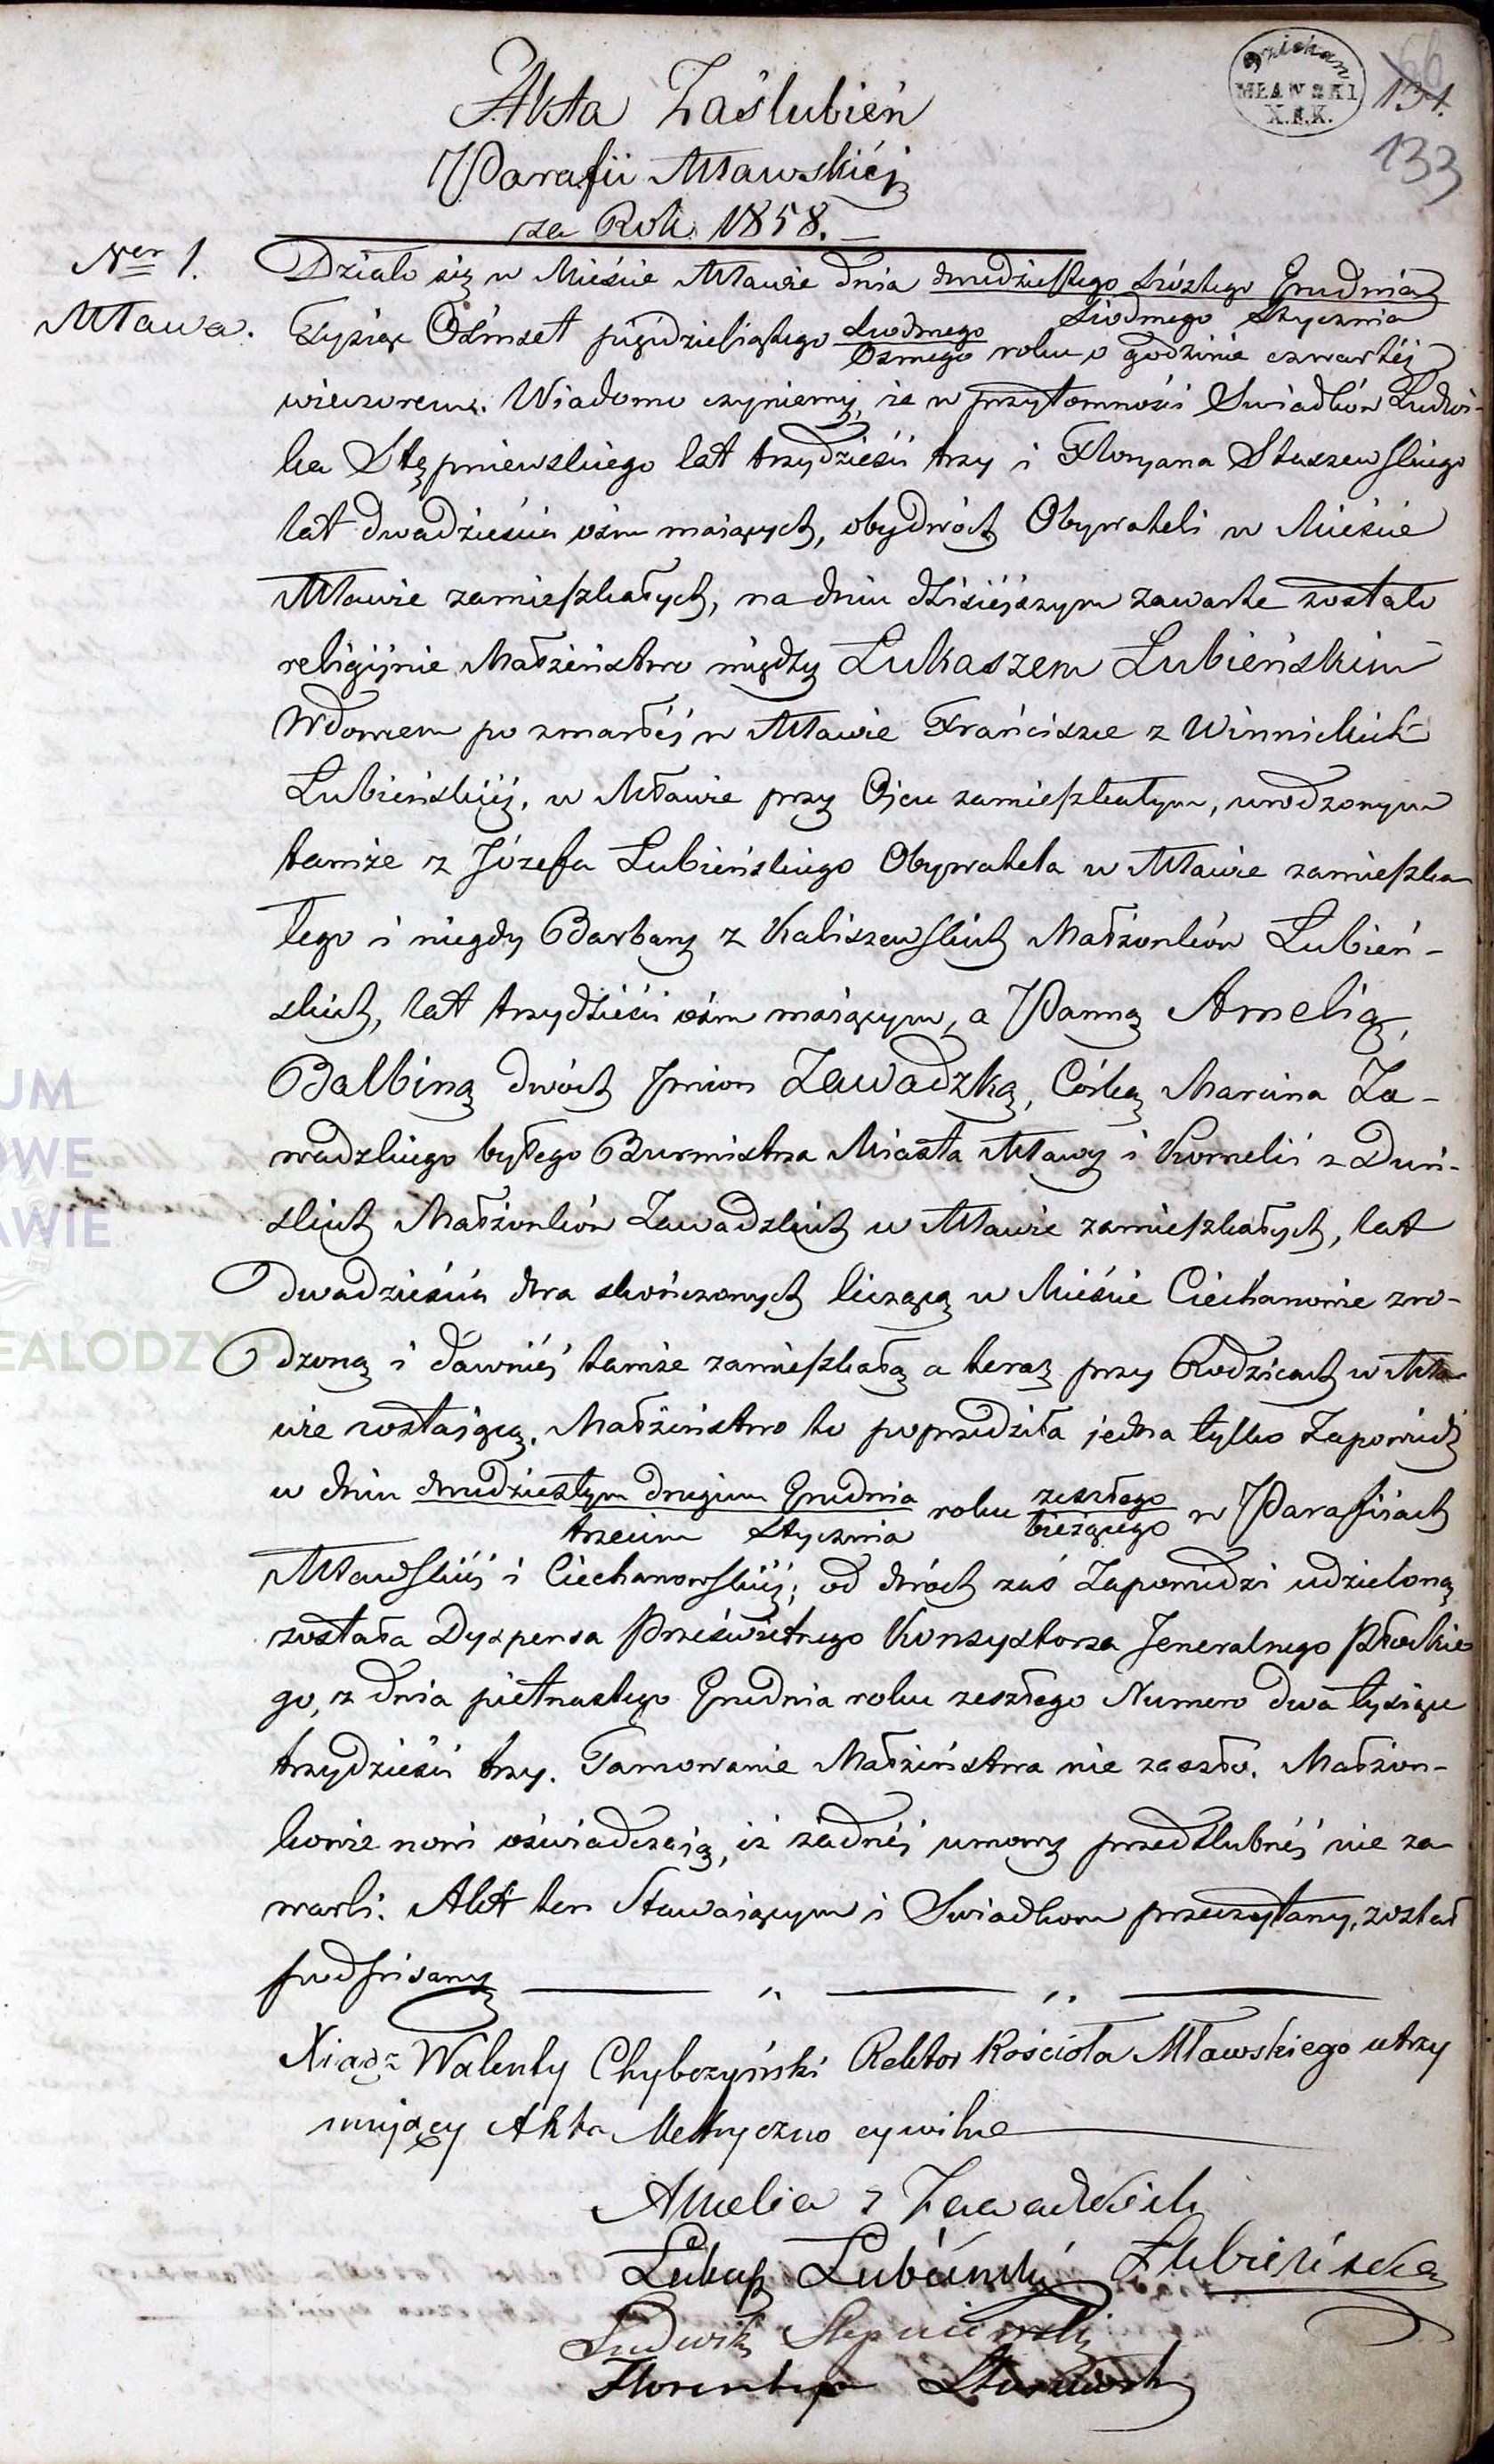 Akta Zaślubień
Parafii Mławskiéj
za Rok 1858.
Dziekan
MŁAWSKI
X.A.K.
131.
133
Ner 1.
Mława.
Działo się w Mieście Mławie dnia dwudziestego szóstego Grudnia
siódmego Stycznia
Tysiąc Ośmset pięćdziesiątego siódmego
ósmego roku o godzinie czwartéj
wieczorem. Wiadomo czyniemy, że w przytomności Swiadków Ludwi-
ka Stępniewskiego lat trzydzieści trzy i Floryana Staszewskiego
lat dwadzieścia ośm maiących, obydwóch Obywateli w Mieście
Mławie zamieszkałych, na dniu dzisiéjszym zawarte zostało
religijnie Małżeństwo między Łukaszem Lubieńskim
Wdowcem po zmarłéj w Mławie Franciszce z Winnickich
Lubieńskiéj, w Mławie przy Ojcu zamieszkałym, urodzonym
tamże z Józefa Lubieńskiego Obywatela w Mławie zamieszka
łego i niegdy Barbary z Kaliszewskich Małżonków Lubień-
skich, lat trzydzieści ośm maiącym, a Panną Amelią,
Balbiną dwóch Imion Zawadzką, Córką Marcina Za-
wadzkiego byłego Burmistrza Miasta Mławy i Kornelii z Duń-
skich Małżonków Zawadzkich w Mławie zamieszkałych, lat
dwadzieścia dwa skończonych liczącą w Mieście Ciechanowie zro-
dzoną i dawniéj tamże zamieszkałą a teraz przy Rodzicach w Mła
wie zostającą. Małżeństwo to poprzedziła jedna tylko Zapowiedź
w dniu dwudziestym drugim Grudnia
trzecim Stycznia roku zeszłego
bieżącego w Parafiiach
Mławskiéj i Ciechanowskiéj; od dwóch zaś Zapowiedzi udzieloną
została Dyspensa Prześwietnego Konsystorza Jeneralnego Płockie
go, z dnia piętnastego Grudnia roku zeszłego Numero dwa tysiące
trzydzieści trzy. Tamowanie Małżeństwa nie zaszło. Małżon-
kowie nowi oświadczaią, iż żadnéj umowy przedślubnéj nie za
warli. Akt ten Stawaiącym i Swiadkom przeczytany, został
podpisany
Xiądz Walenty Chybczyński Rektor Kościoła Mławskiego utrzy
mujący Akta Metryczno cywilne
Amelia z Zawadzkich
Łukasz Lubieński Lubieńska
Ludwik Stępniewski